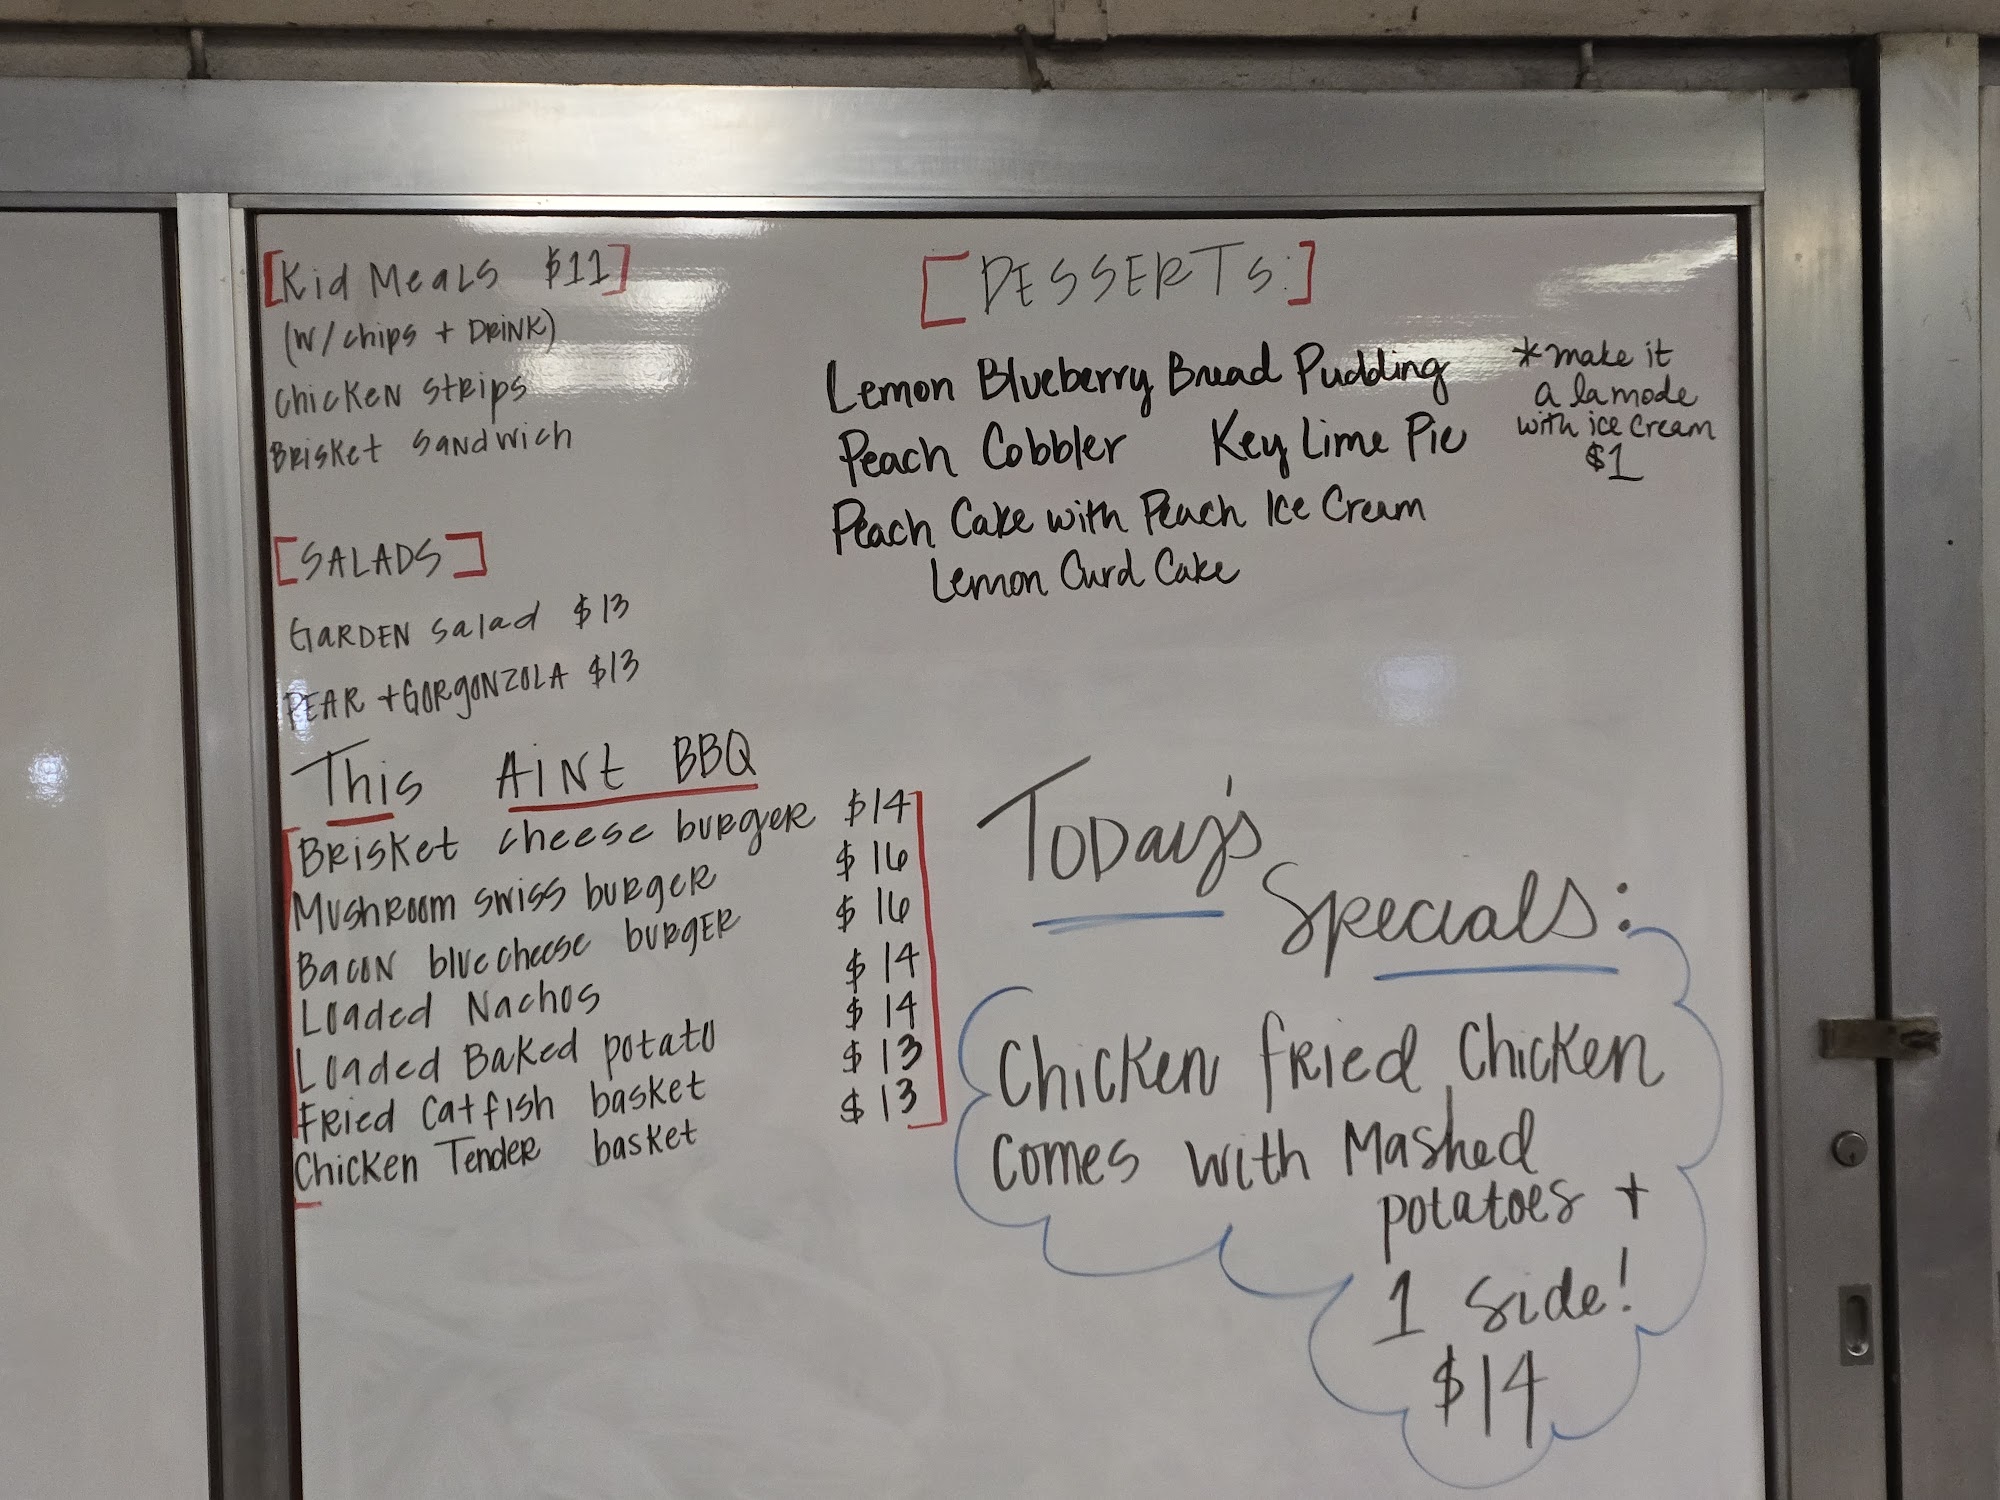 [Kid Meals $11]
(w/chips + Drink)
Chicken strips
Brisket sandwich
[SALADS]
Garden salad $13
Pear + Gorgonzola $13
This Aint BBQ
Brisket cheese burger $14
Mushroom swiss burger $16
Bacon bluecheese burger $16
Loaded Nachos $14
Loaded Baked potato $14
Fried Catfish basket $13
Chicken Tender basket $13
[DESSERTS:]
Lemon Blueberry Bread Pudding
Peach Cobbler Key Lime Pie
Peach Cake with Peach Ice Cream
Lemon Curd Cake
*make it
a la mode
with ice cream
$1
Today's
Specials:
Chicken fried chicken
comes with Mashed
potatoes +
1 side!
$14